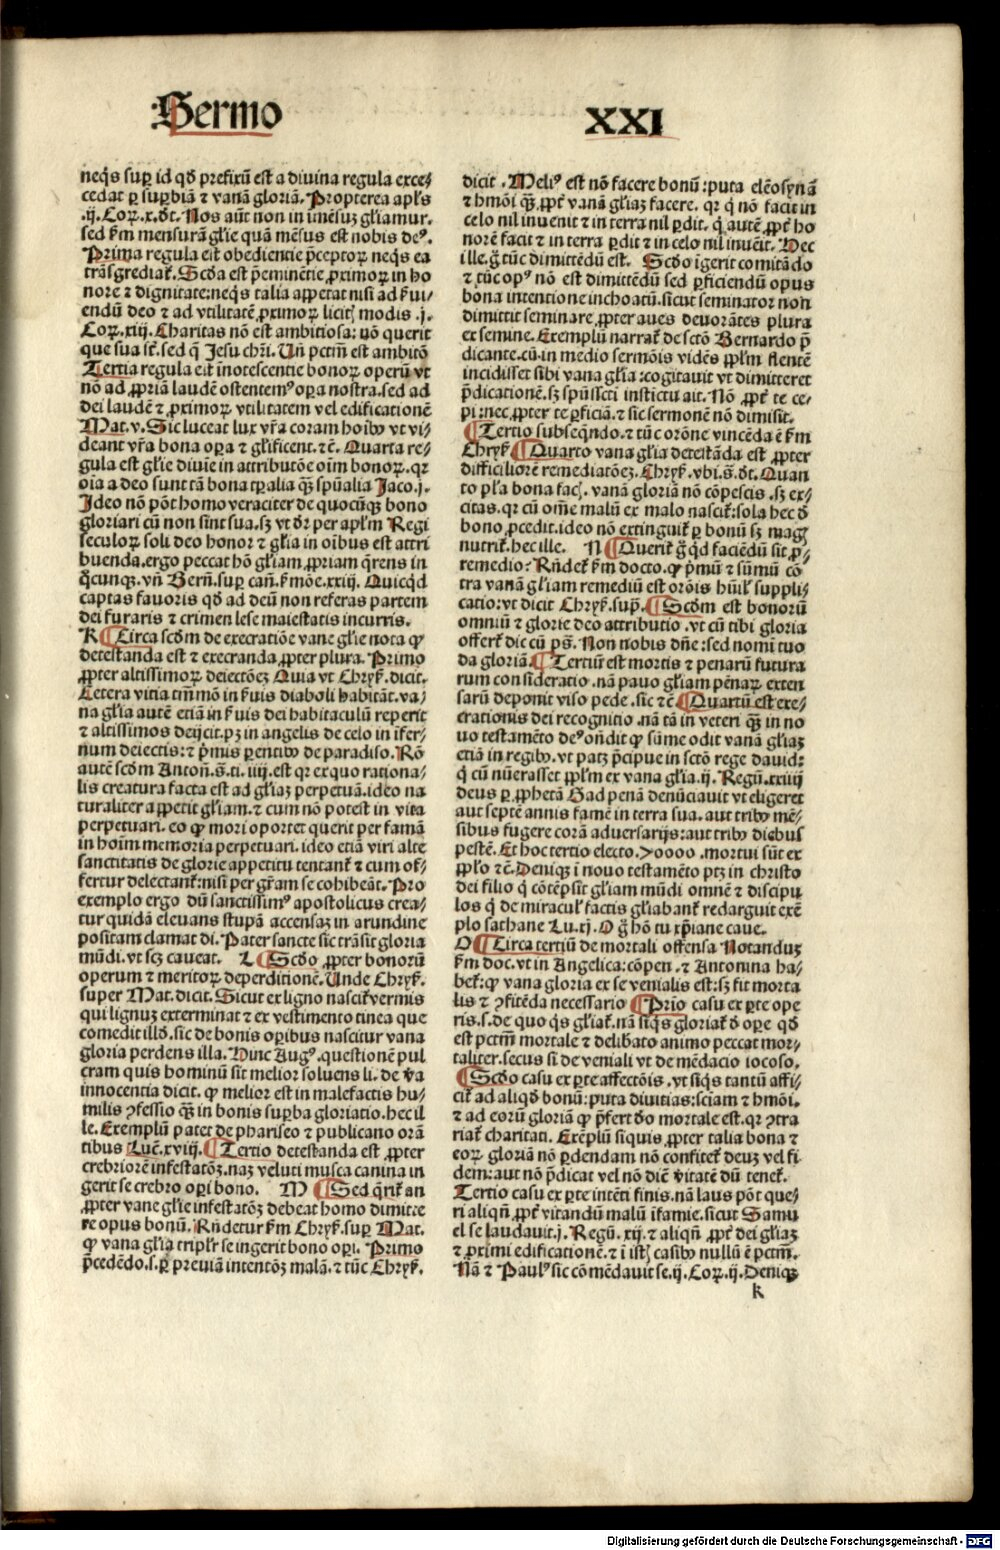 Sermo
XXI
neq̄s suꝑ id qd̄ prefixū est a divina regula exce⸗
cedat ꝑ suꝑbiā ⁊ vanā gloriā. Propterea apl̄s
.ij. Coꝝ.x.dt̄. Nos aūt non in im̄ēsuꝫ gl̄iamur.
sed ẜm mensurā gl̄ie quā mēsus est nobis deꝰ.
Prima regula est obediētie p̄ceptoꝝ neq̄s ea
trāsgrediat᷑. Scd̄a est p̄eminētie ꝓximoꝝ in ho
nore ⁊ dignitate: neq̄s talia appetat nisi ad ẜui⸗
endū deo ⁊ ad vtilitatē ꝓximoꝝ licit modis .j.
Coꝝ.xiij. Charitas nō est ambitiosa: nō querit
que sua st̄. sed q̄ Jesu chr̄i. Un̄ pctm̄ est ambitō
Tertia regula est inotescentie bonoꝝ operū vt
nō ad ꝓpriā laudē ostentemꝰ oꝑa nostra. sed ad
dei laudē ⁊ ꝓximoꝝ vtilitatem vel edificationē
Mat.v. Sic luceat lux vr̄a coram hoībꝰ vt vi⸗
deant vr̄a bona oꝑa ⁊ gl̄ificent. ⁊c̄. Quarta re⸗
gula est gl̄ie diuīe in attributōe oīm bonoꝝ. qꝛ
oīa a deo sunt tā bona tꝑalia qꝫ spūalia Jaco.j.
Ideo nō pōt homo veraciter de quocūqꝫ bono
gloriari cū non sint sua. sꝫ vt dr̄ per apl̄m Regi
seculoꝝ soli deo honor ⁊ gl̄ia in oībus est attri
buenda. ergo peccat hō gl̄iam ꝓpriam q̄rens in
q̄cunqꝫ. vn̄ Bern̄. suꝑ can̄. ẜmōe.xxij. Quicqd
captas fauoris qd̄ ad deū non referas partem
dei furaris ⁊ crimen lese maiestatis incurris.
K ¶ Circa scd̄m de execratiōe vane gl̄ie nota ꝙ
detestanda est ⁊ execranda ꝓpter plura. Primo
ꝓpter altissimoꝝ deiectōeꝫ Quia vt Chryẜ. dicit.
Cetera vitia tm̄mō in ẜuis diaboli habitāt. va⸗
na gl̄ia autē etiā in ẜuis dei habitaculū reperit
⁊ altissimos deijcit. pꝫ in angelis de celo in īfer⸗
num deiectis: ⁊ p̄mis parentibꝰ de paradiso. Rō
autē scd̄m Anton̄.s̄.ti.iiij. est qꝛ ex quo rationa⸗
lis creatura facta est ad gl̄iaꝫ perpetuā. ideo na
turaliter appetit gl̄iam. ⁊ cum nō potest in vita
perpetuari. eo ꝙ mori oportet querit per famā
in hoīm memoria perpetuari. ideo etiā viri alte
sanctitatis de glorie appetitu tentant᷑ ⁊ cum of⸗
fertur delectant᷑: nisi per gr̄am se cohibeāt. Pro
exemplo ergo dū sanctissimꝰ apostolicus crea⸗
tur quidā eleuans stupā accensaꝫ in arundine
positam clamat di. Pater sancte sic trāsit gloria
mūdi. vt scꝫ caueat. L ¶ Scd̄o ꝓpter bonorū
operum ⁊ meritoꝝ deperditionē. Unde Chryẜ.
super Mat. dicit. Sicut ex ligno nascit᷑ vermis
qui lignuꝫ exterminat ⁊ ex vestimento tinea que
comedit illd̄. sic de bonis oꝑibus nascitur vana
gloria perdens illa. Hinc Augꝰ. questionē pul
cram quis hominū sit melior soluens li. de v̄a
innocentia dicit. ꝙ melior est in malefactis hu⸗
milis ꝯfessio qꝫ in bonis suꝑba gloriatio. hec il
le. Exemplū patet de phariseo ⁊ publicano orā
tibus Luc̄.xviij. ¶ Tertio detestanda est ꝓpter
crebriorē infestatōꝫ. naꝫ veluti musca canina in
gerit se crebro oꝑi bono. M ¶ Sed q̄rit᷑ an
ꝓpter vane gl̄ie infestatōꝫ debeat homo dimitte
re opus bonū. Rn̄detur ẜm Chryẜ. suꝑ Mat.
ꝙ vana gl̄ia tripl̄r se ingerit bono oꝑi. Primo
p̄cedēdo.s.ꝑ preuiā intentōꝫ malā. ⁊ tūc Chryẜ.
dicit. Meliꝰ est nō facere bonū: puta eleōsynā
⁊ hmōi qꝫ ꝓpt̄ vanā gl̄iaꝫ facere. qꝛ q̄ nō facit in
celo nil inuenit ⁊ in terra nil ꝑdit. q̄ autē ꝓpt̄ ho
norē facit ⁊ in terra ꝑdit ⁊ in celo nil inuēit. Hec
ille. g̊ tūc dimittēdū est. Scd̄o īgerit comitādo
⁊ tūc opꝰ nō est dimittēdū sed ꝑficiendū opus
bona intentione inchoatū. sicut seminator non
dimittit seminare ꝓpter aues deuorātes plura
ex semine. Exemplū narrat᷑ de sctō Bernardo p̄
dicante. cū in medio sermōis vidēs ppl̄m flentē
incidisset sibi vana gl̄ia: cogitauit vt dimitteret
p̄dicationē. sꝫ spūsscti instictu ait. Nō ꝓpt̄ te ce⸗
pi: nec ꝓpter te ꝑficiā. ⁊ sic sermonē nō dimisit.
¶ Tertio subseq̄ndo. ⁊ tūc orōne vincēda ē ẜm
Chryẜ. ¶ Quarto vana gl̄ia detestāda est ꝓpter
difficiliorē remediatōeꝫ. Chryẜ. vbi.s̄.dt̄. Quan
to pl̄a bona fac. vanā gloriā nō cōpescis. sꝫ ex⸗
citas. qꝛ cū om̄e malū ex malo nascit᷑: sola hec d̄
bono ꝓcedit. ideo nō extinguit᷑ ꝑ bonū sꝫ mag
nutrit᷑. hec ille. N ¶ Querit᷑ g̊ qd faciēdū sit ꝓ
remedio? Rn̄det᷑ ẜm docto. ꝙ p̄mū ⁊ sūmū cō
tra vanā gl̄iam remediū est orōis hūil suppli⸗
catio: vt dicit Chryẜ. sup̄. ¶ Scd̄m est bonorū
omniū ⁊ glorie deo attributio. vt cū tibi gloria
offert᷑ dic cū ps̄. Non nobis dn̄e: sed nomi tuo
da gloriā. ¶ Tertiū est mortis ⁊ penarū futura
rum consideratio. nā pauo gl̄iam pēnaꝝ exten
sarū deponit viso pede. sic ⁊c̄ ¶ Quartū est exe⸗
crationis dei recognitio. nā tā in veteri qꝫ in no
uo testamēto deꝰ on̄dit ꝙ sūme odit vanā gl̄iaꝫ
etiā in regibꝰ. vt patꝫ p̄cipue in sctō rege dauid:
q̄ cū nūerasset ppl̄m ex vana gl̄ia.ij. Regū.xxiiij
deus ꝑ ꝓphetā Gad penā denūciauit vt eligeret
aut septē annis famē in terra sua. aut tribꝰ mē⸗
sibus fugere corā aduersarijs: aut tribꝰ diebus
pestē. Et hoc tertio electo. 70000 .mortui sūt ex
ppl̄o ⁊c̄. Deniqꝫ ī nouo testamēto ptꝫ in christo
dei filio q̄ cōtēpsit gl̄iam mūdi omnē ⁊ discipu
los q̄ de miracul factis gl̄iabant᷑ redarguit exē
plo sathane Lu.xj. O g̊ hō tu xp̄iane caue.
O ¶ Circa tertiū de mortali offensa Notanduꝫ
ẜm doc. vt in Angelica: cōpen. ⁊ Antonina ha⸗
bet᷑: ꝙ vana gloria ex se venialis est: sꝫ fit morta
lis ⁊ ꝯfitēda necessario ¶ Prīo casu ex ꝑte ope
ris.s. de quo q̄s gl̄iat᷑. nā siq̄s gloriat᷑ d̄ oꝑe qd̄
est pctm̄ mortale ⁊ delibato animo peccat mor⸗
taliter. secus si de veniali vt de mēdacio iocoso.
¶ Scd̄o casu ex ꝑte affectōis. vt siq̄s tantū affi⸗
cit᷑ ad aliqd̄ bonū: puta diuitias: sciam ⁊ hmōi.
⁊ ad eorū gloriā ꝙ p̄fert d̄o mortale est. qꝛ ꝯtra
riat᷑ charitati. Exēplū si quis ꝓpter talia bona ⁊
eoꝝ gloriā nō ꝑdendam nō confitet᷑ deuꝫ vel fi⸗
dem: aut nō p̄dicat vel nō diē v̄itatē dū tenet᷑.
Tertio casu ex ꝑte intēti finis. nā laus pōt que⸗
ri aliqn̄ ꝓpt̄ vitandū malū īfamie. sicut Samu
el se laudauit.j. Regū.xij. ⁊ aliqn̄ ꝓpt̄ dei gl̄iaꝫ
⁊ ꝓximi edificationē. ⁊ ī ist casibꝰ nullū ē pctm̄.
Nā ⁊ Paulꝰ sic cōmēdauit se.ij. Coꝝ.ij. Deniqꝫ
k
Digitalisierung gefördert durch die Deutsche Forschungsgemeinschaft - DFG